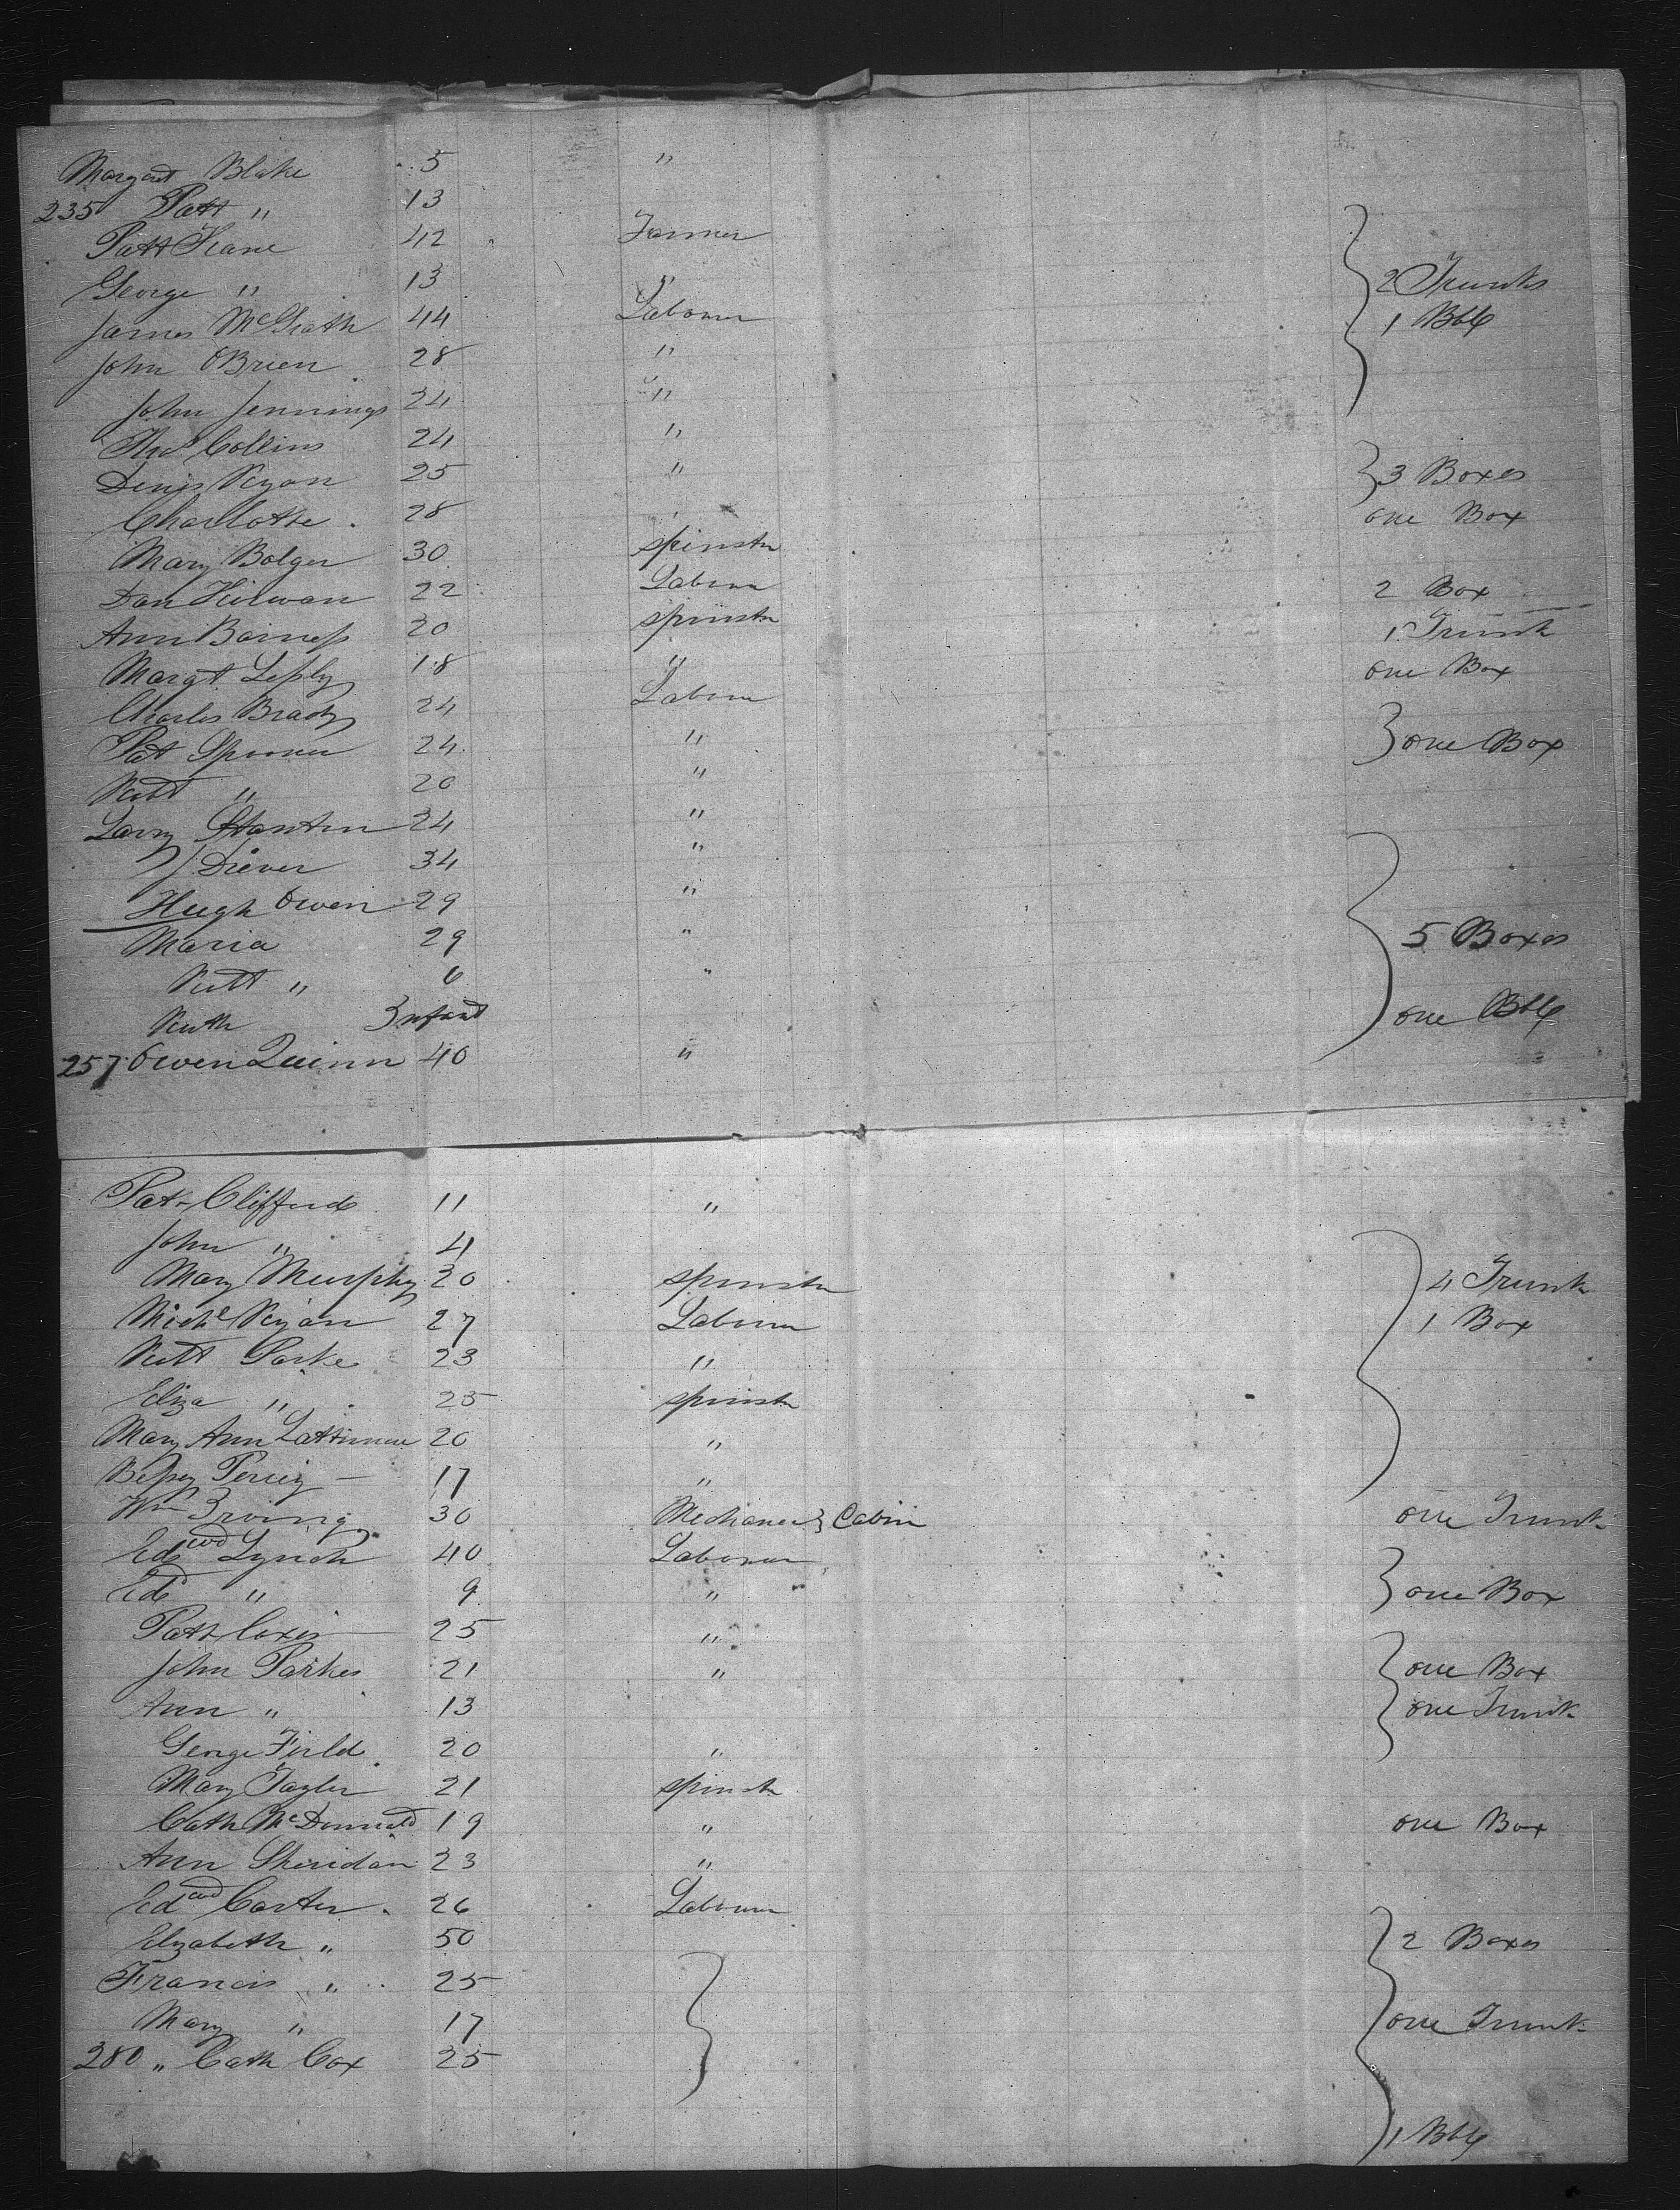 Margaret Blake 5 "
235 Patt " 13
Patt Kane 42 Farmer
George " 13 " 2 Trunks
James McGrath 44 Labourer 1 Bbl
John OBrien 28 "
John Jennings 24 "
Thos Collins 24 "
Denis Ryan 25 " 3 Boxes
Charlotte 28 one Box
Mary Bolger 30 spinster
Dan Kirwan 22 Labourer 2 Box
Ann Barness 20 spinster 1 Trunk
Margt Lesly 18 " one Box
Charles Brady 24 Labourer
Pat Spooner 24 " one Box
Catt " 20 "
Larry Stanton 24 "
J Driver 34 "
Hugh Owen 29 "
Maria 29 " 5 Boxes
Catt " 6 "
Ruth Infant one Bbl
257 Owen Quinn 40 "
Pat Clifford 11 "
John " 4
Mary Murphy 20 spinster 4 Trunk
Michl Ryan 27 Labourer 1 Box
Catt Parke 23 "
Eliza " 25 spinster
Mary Ann Lattimore 20 "
Bessy Perrig 17 "
Wm Irving 30 Mechanic Cabin one Trunk
Edwd Lynch 40 Labourer
Ed " 9 " one Box
Patt 25 "
John Parkes 21 " one Box
Ann " 13 one Trunk
George Field 20 "
Mary Tayler 21 spinster
Cath McDonnald 19 " one Box
Ann Sheridan 23 "
Edwd Carter 26 Labourer
Elizabeth " 50 2 Boxes
Francis " 25
Mary " 17 one Trunk
280 " Cath Cox 25
1 Bbl